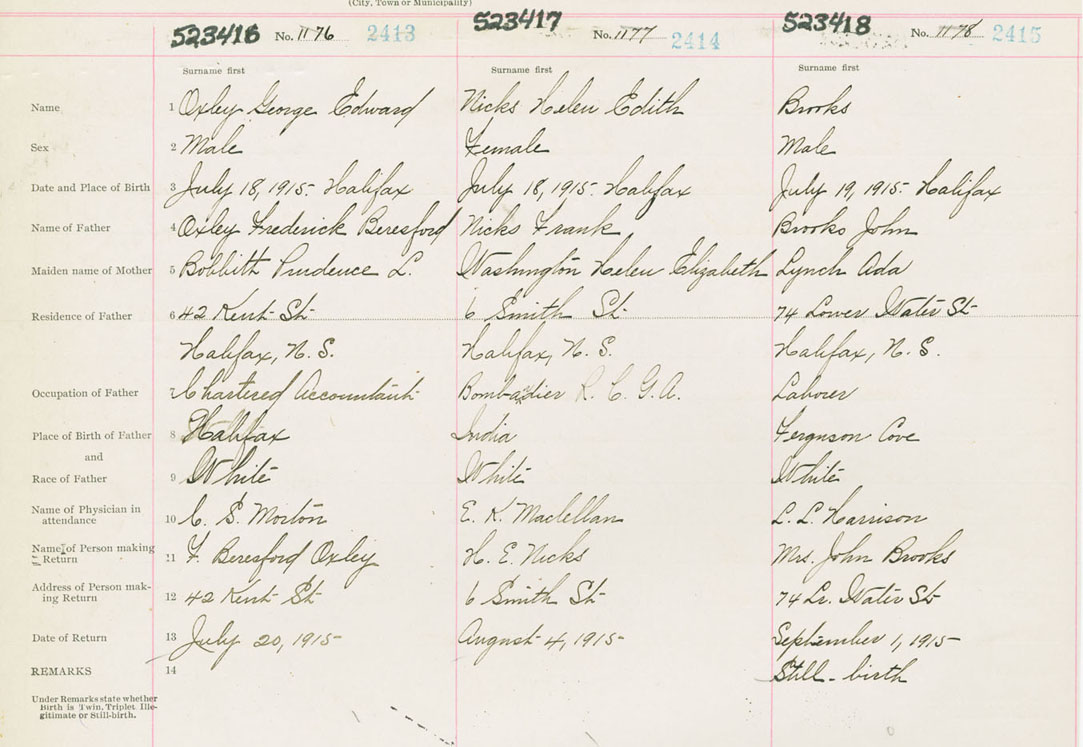 (City, Town or Municipality)
523416 No. 1176 2413 523417 No. 1177 2414 523418 No. 1178 2415
Surname first Surname first Surname first
Name 1 Oxley George Edward Nicks Helen Edith Brooks
Sex 2 Male Female Male
Date and Place of Birth 3 July 18, 1915- Halifax July 18, 1915- Halifax July 19, 1915- Halifax
Name of Father 4 Oxley Frederick Beresford Nicks Frank Brooks John
Maiden name of Mother 5 Bobbitt Prudence L. Washington Helen Elizabeth Lynch Ada
Residence of Father 6 42 Kent St 6 Smith St 74 Lower Water St
Halifax, N.S. Halifax, N.S. Halifax, N.S.
Occupation of Father 7 Chartered Accountant Bombadier R.C.G.A. Laborer
Place of Birth of Father 8 Halifax India Ferguson Cove
and
Race of Father 9 White White White
Name of Physician in
attendance 10 C. S. Morton E. K. Maclellan L. L. Harrison
Name of Person making
Return 11 F. Beresford Oxley H. E. Nicks Mrs. John Brooks
Address of Person mak-
ing Return 12 42 Kent St 6 Smith St 74 Lr. Water St
Date of Return 13 July 20, 1915- August 4, 1915- September 1, 1915-
REMARKS 14 Still-birth
Under Remarks state whether
Birth is Twin, Triplet Ille-
gitimate or Still-birth.